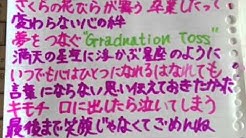 さくらの花びらが舞う 卒業したって
変わらない心の絆
夢をつなぐ"Graduation Toss"
満天の星空に浮かぶ星座のように
いつでも心はひとつになれるはなれても
言葉にならない思い伝えておきたかった
キモチ 口に出したら泣いてしまう
最後まで笑顔じゃなくてごめんね